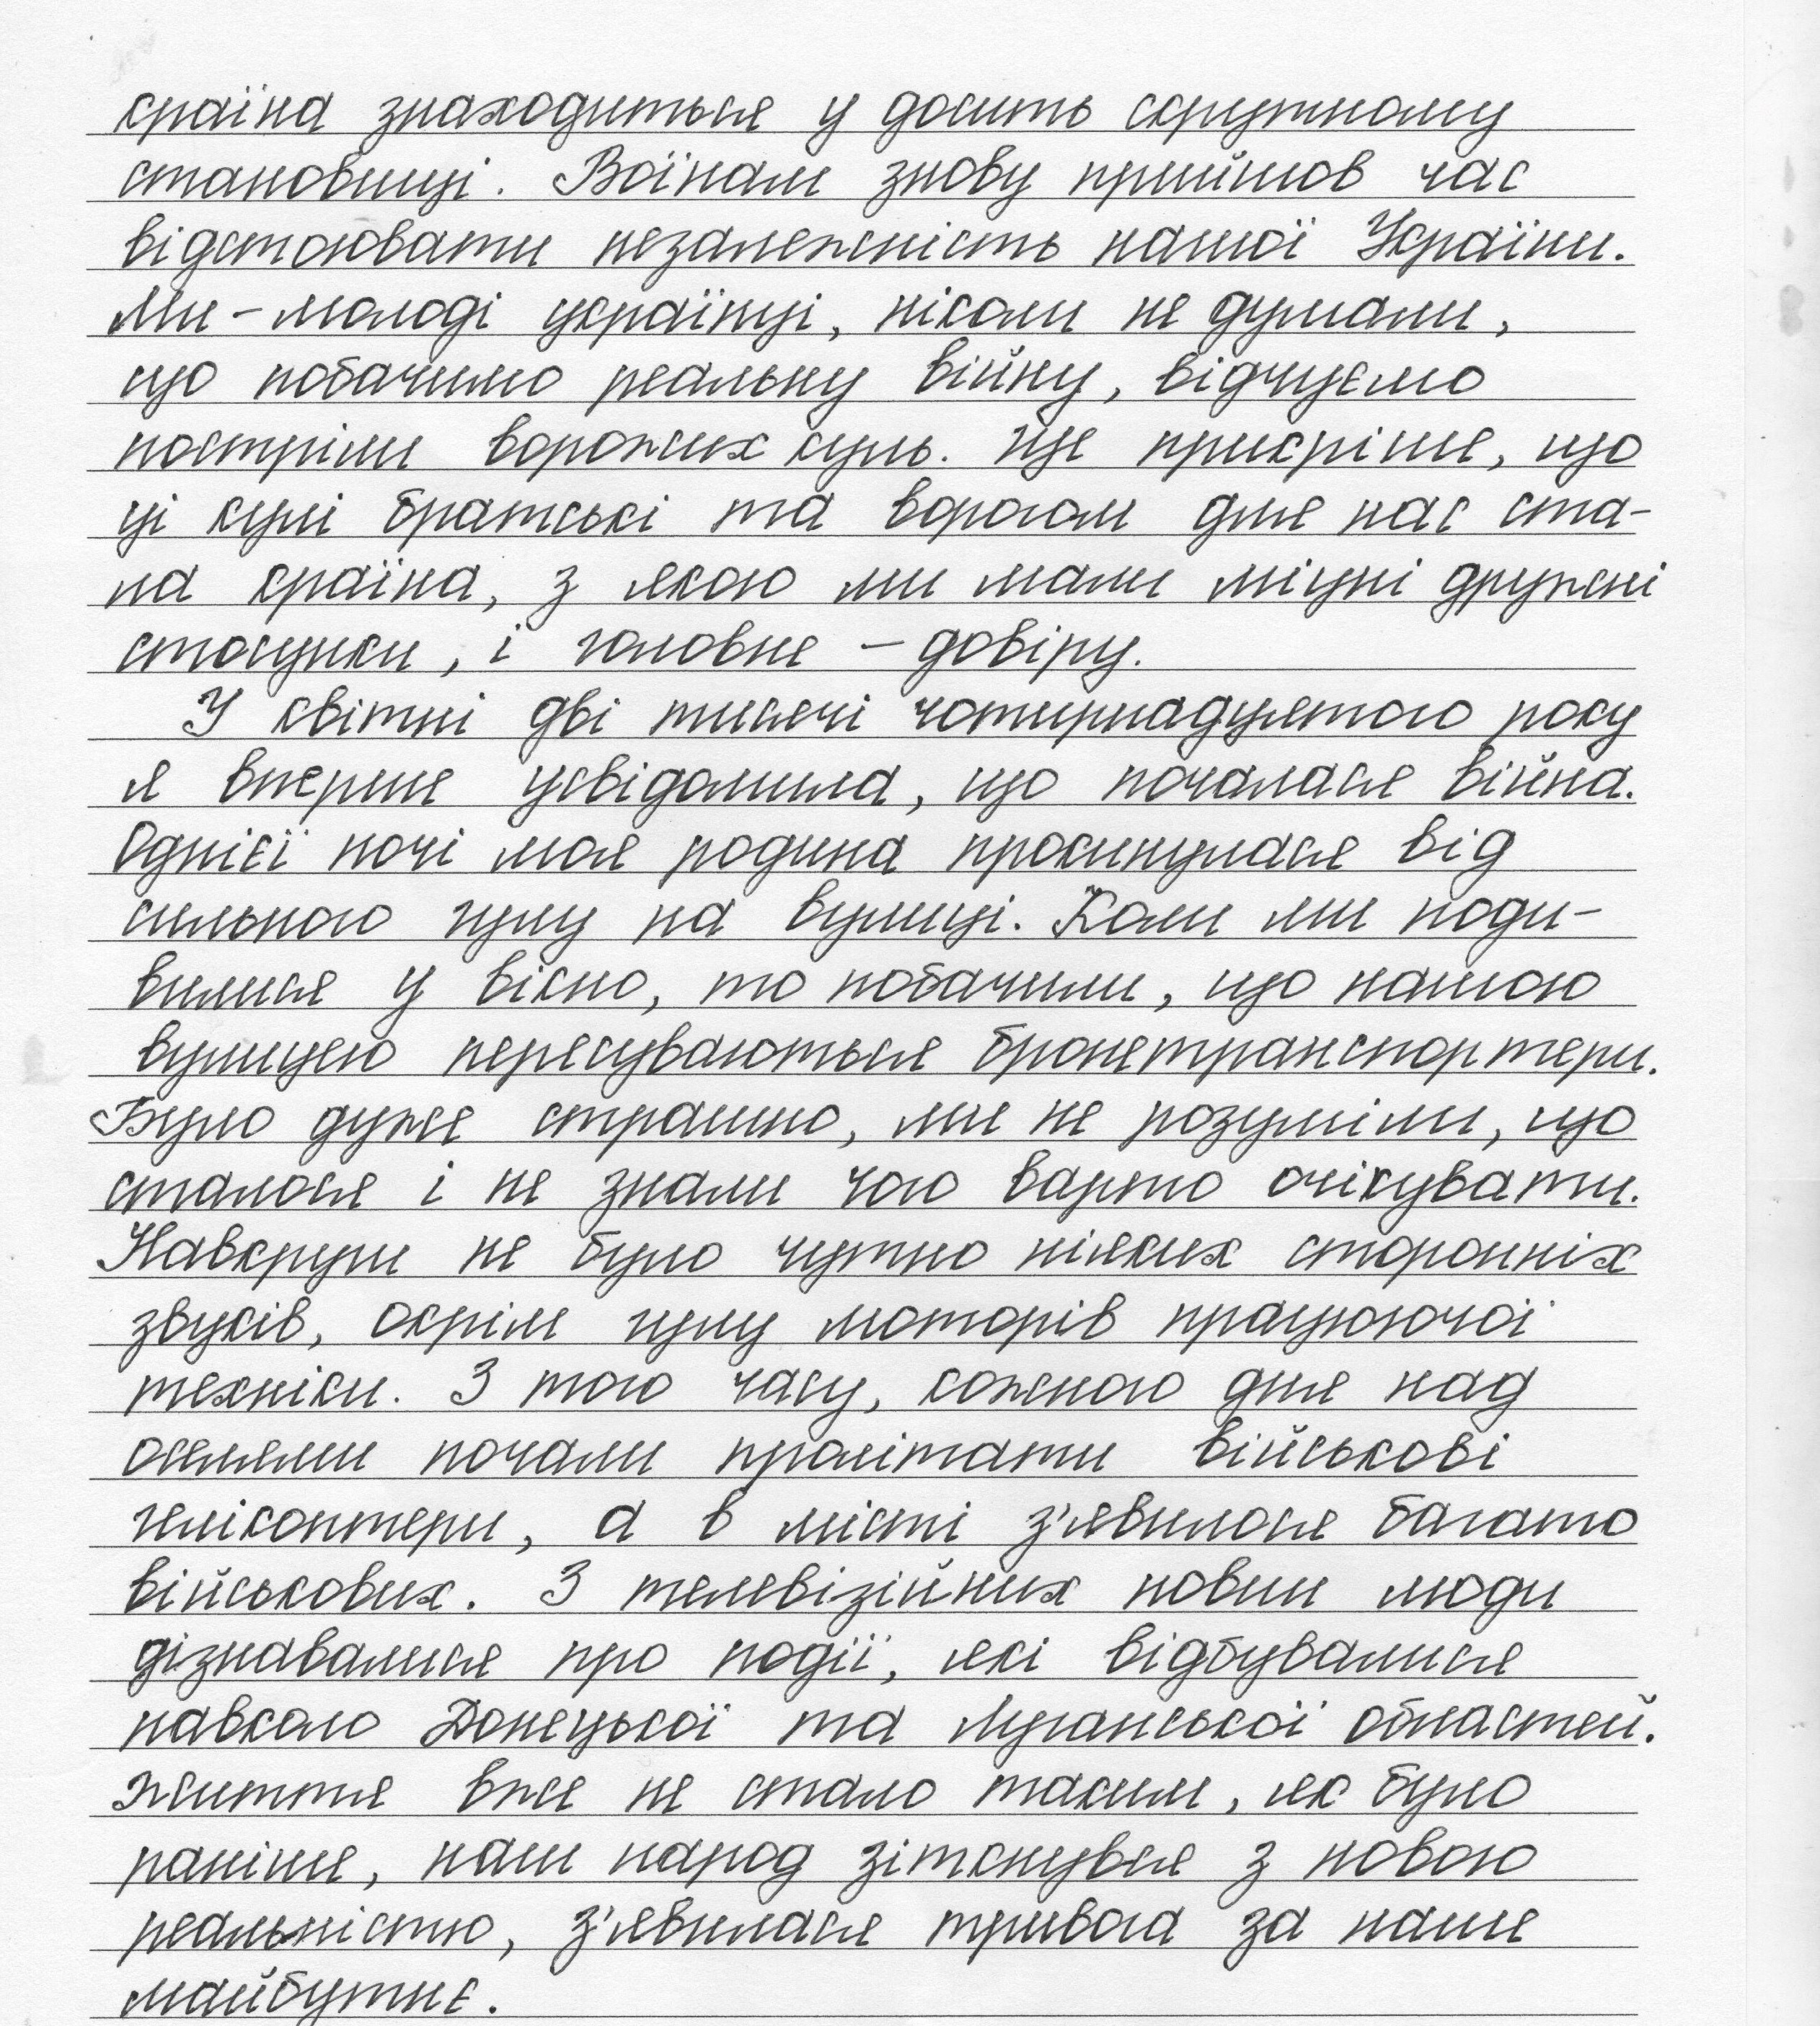 країна знаходиться у досить скрутному
становищі. Воїнам знову прийшов час
відстоювати незалежність нашої України.
Ми – молоді українці, ніколи не думали,
що побачимо реальну війну, відчуємо
постріли ворожих куль. Ще прикріше, що
ці кулі братські та ворогом для нас ста-
ла країна, з якою ми мали міцні дружні
стосунки, і головне – довіру.
У квітні дві тисячі чотирнадцятого року
я вперше усвідомила, що почалася війна.
Однієї ночі моя родина просинулася від
сильного гулу на вулиці. Коли ми поди-
вилися у вікно, то побачили, що нашою
вулицею пересуваються бронетранспортери.
Було дуже страшно, ми не розуміли, що
сталося і не знали чого варто очікувати.
Навкруги не було чутно ніяких сторонніх
звуків, окрім гулу моторів працюючої
техніки. З того часу, кожного дня над
оселями почали пролітати військові
гелікоптери, а в місті з'явилося багато
військових. З телевізійних новин люди
дізнавалися про події, які відбувалися
навколо Донецької та Луганської областей.
Життя вже не стало таким, як було
раніше, наш народ зіткнувся з новою
реальністю, з'явилася тривога за наше
майбутнє.